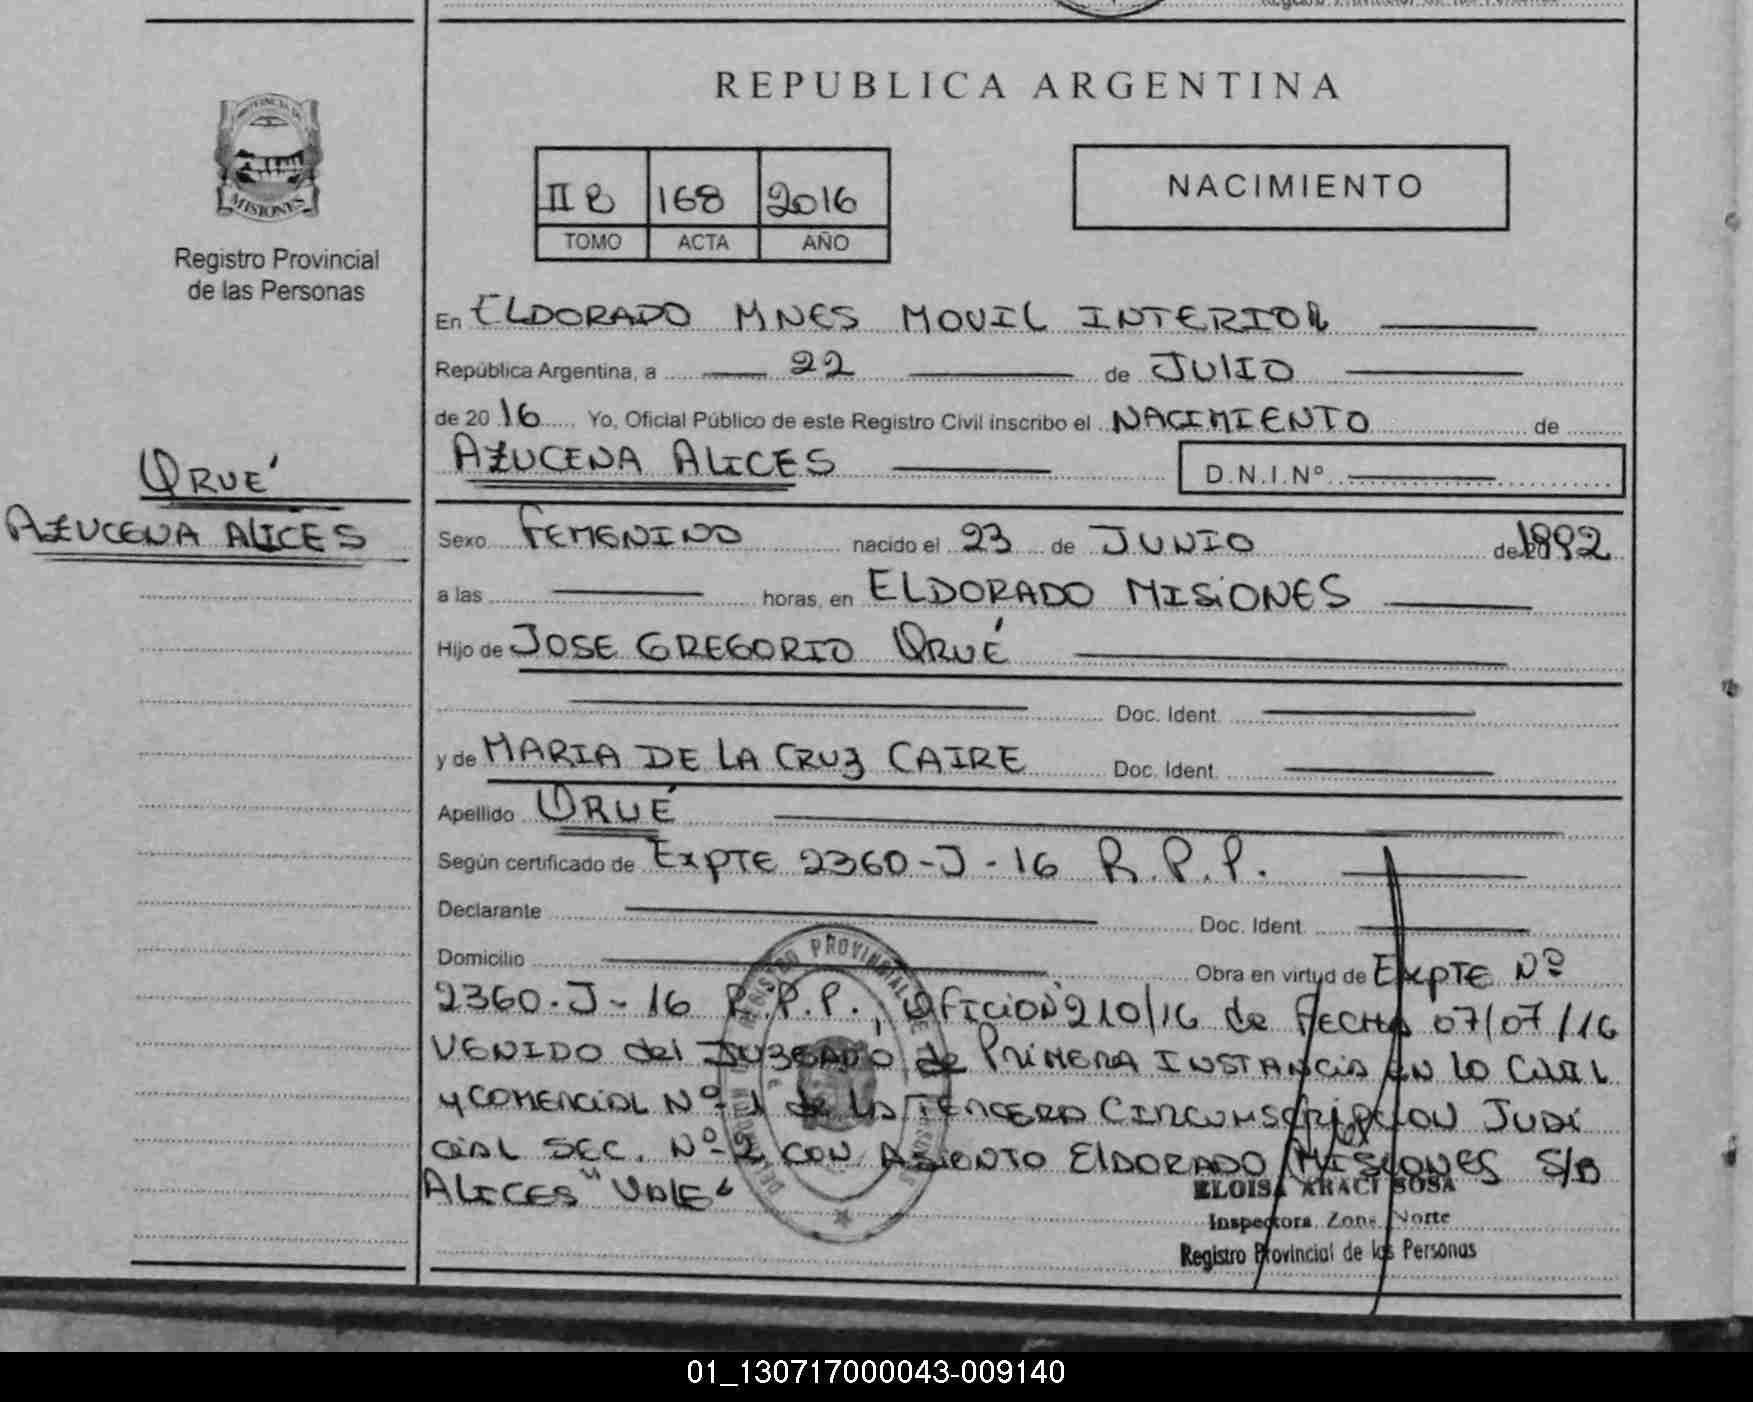 REPUBLICA ARGENTINA
PROVINCIA DE
MISIONES
Registro Provincial
de las Personas
II B 168 2016
TOMO ACTA AÑO
NACIMIENTO
En ELDORADO MNES MOVIL INTERIOR
República Argentina, a 22 de JULIO
de 20 16 Yo, Oficial Público de este Registro Civil inscribo el NACIMIENTO de
AZUCENA ALICES D.N.I.Nº
ORUÉ
AZUCENA ALICES
Sexo FEMENINO nacido el 23 de JUNIO de 1992
a las horas, en ELDORADO MISIONES
Hijo de JOSE GREGORIO ORUÉ
Doc. Ident.
y de MARIA DE LA CRUZ CAIRE Doc. Ident.
Apellido ORUÉ
Según certificado de EXPTE 2360-J-16 R.P.P.
Declarante Doc. Ident.
Domicilio Obra en virtud de EXPTE Nº
2360-J-16 R.P.P., OFICIO Nº 210/16 de FECHA 07/07/16
VENIDO del JUZGADO de PRIMERA INSTANCIA EN LO CIVIL
y COMERCIAL Nº-1 de LA TERCERA CIRCUMSCRIPCION JUDI
CIAL SEC. Nº-2 CON ASIENTO ELDORADO MISIONES S/B
ALICES "VALE"
REGISTRO PROVINCIAL DE
ELOISA ARACI SOSA
Inspectora Zona Norte
Registro Provincial de las Personas
01_130717000043-009140